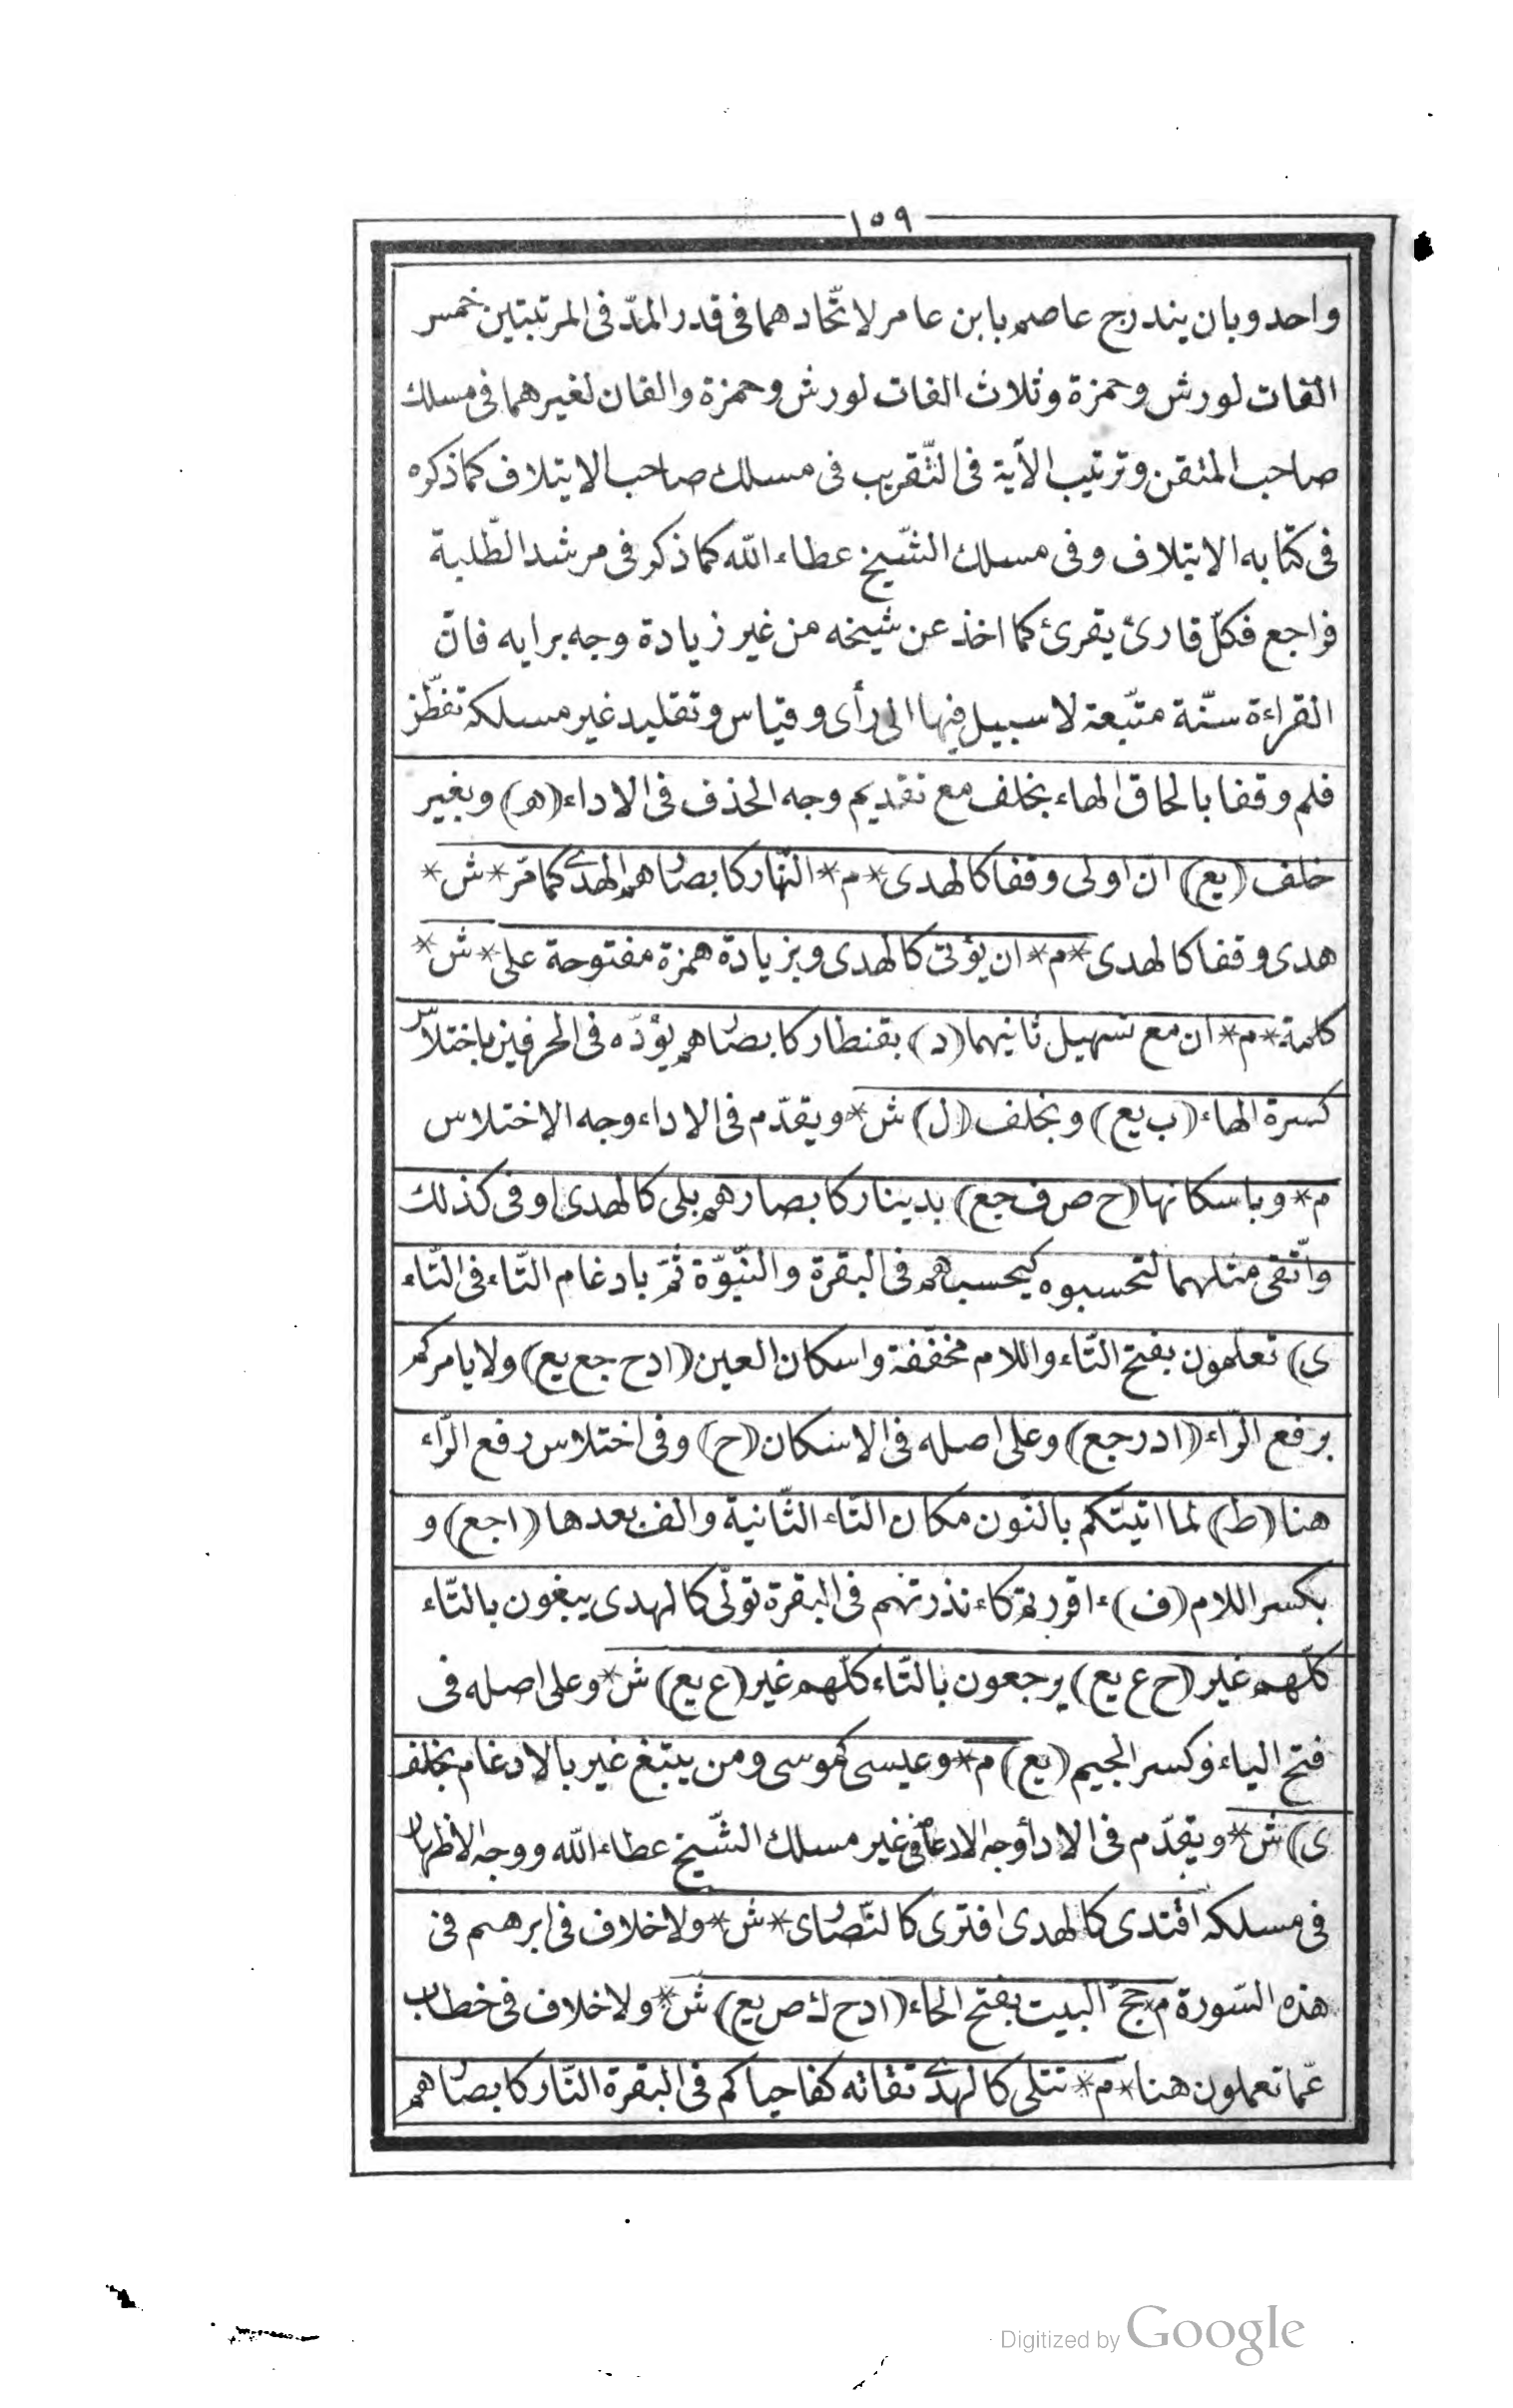 ١٥٩
واحد وبان يندرج عاصم بابن عامر لاتّحادهما فى قدر المدّ فى المرتبتين خمس
الفات لورش وحمزة وثلاث الفات لورش وحمزة والفان لغيرهما فى مسلك
صاحب المتقن وترتيب الآية فى التّقريب فى مسلك صاحب الايتلاف كما ذكره
فى كتابه الايتلاف وفى مسلك الشّيخ عطاء الله كما ذكر فى مرشد الطّلبة
فراجع فكلّ قارئ يقرئ كما اخذ عن شيخه من غير زيادة وجه برايه فانّ
القراءة سنّة متّبعة لا سبيل فيها الى رأى وقياس وتقليد غير مسلكه تفطّن
فلم وقفا بالحاق الهاء بخلف مع تقديم وجه الحذف فى الاداء (هـ) وبغير
خلف (يع) انّ اولى وقفا كالهدى *م* النّهار كابصارهم الهدى كما مرّ *ش*
هدى وقفا كالهدى *م* ان يؤتى كالهدى وبزيادة همزة مفتوحة على *ش*
كلمة *م* ان مع تسهيل ثانيهما (د) بقنطار كابصارهم يؤدّه فى الحرفين باختلاس
كسرة الهاء (ب يع) وبخلف (ل) ش* ويقدّم فى الاداء وجه الاختلاس
م* وباسكانها (ح ص ف جع) بدينار كابصارهم بلى كالهدى اوفى كذلك
واتّقى مثلهما لتحسبوه كيحسبهم فى البقرة والنّبوّة ثمّ بادغام التّاء فى الثّاء
ى) تعلّمون بفتح التّاء واللام مخفّفة واسكان العين (ا د ح جع يع) ولا يامركم
برفع الرّاء (ا د ر جع) وعلى اصله فى الاسكان (ح) وفى اختلاس رفع الرّاء
هنا (ط) لما اتيتكم بالنّون مكان التّاء الثّانية والف بعدها (ا جع) و
بكسر اللام (ف) ءاقررتم كاءنذرتهم فى البقرة تولّى كالهدى يبغون بالتّاء
كلّهم غير (ح ع يع) يرجعون بالتّاء كلّهم غير (ع يع) ش* وعلى اصله فى
فتح الياء وكسر الجيم (يع) م* وعيسى كموسى ومن يبتغ غير بالادغام بخلف
ى) ش* ويقدّم فى الاداء وجه الادغام فى غير مسلك الشّيخ عطاء الله ووجه الاظهار
فى مسلكه افتدى كالهدى افترى كالنّصارى *ش* ولا خلاف فى ابرهيم فى
هذه السّورة م* حجّ البيت بفتح الحاء (ا د ح ك ص يع) ش* ولا خلاف فى خطاب
عمّا تعملون هنا *م* تتلى كالهدى تقاته كفاحياكم فى البقرة النّار كابصارهم
Digitized by Google